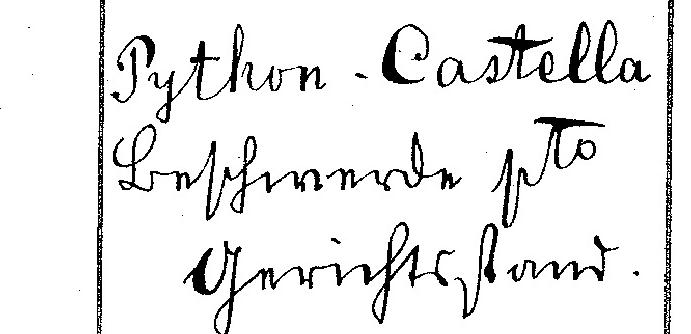 Python - Castella
Beschwerde pto
Gerichtsstand.